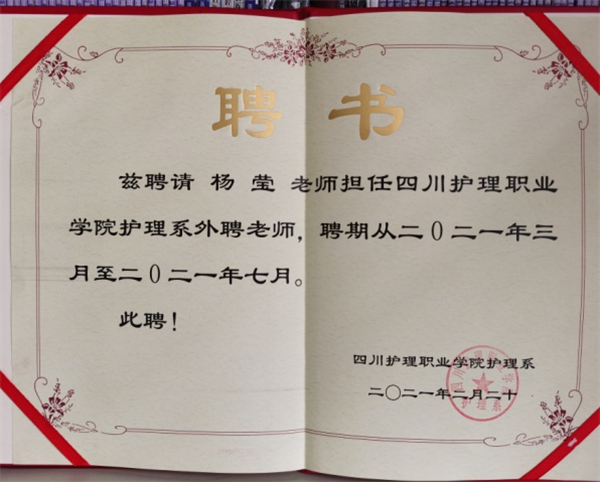 聘书
兹聘请 杨 莹 老师担任四川护理职业
学院护理系外聘老师，聘期从二〇二一年三
月至二〇二一年七月。
此聘！
四川护理职业学院护理系
二〇二一年二月二十
护理系